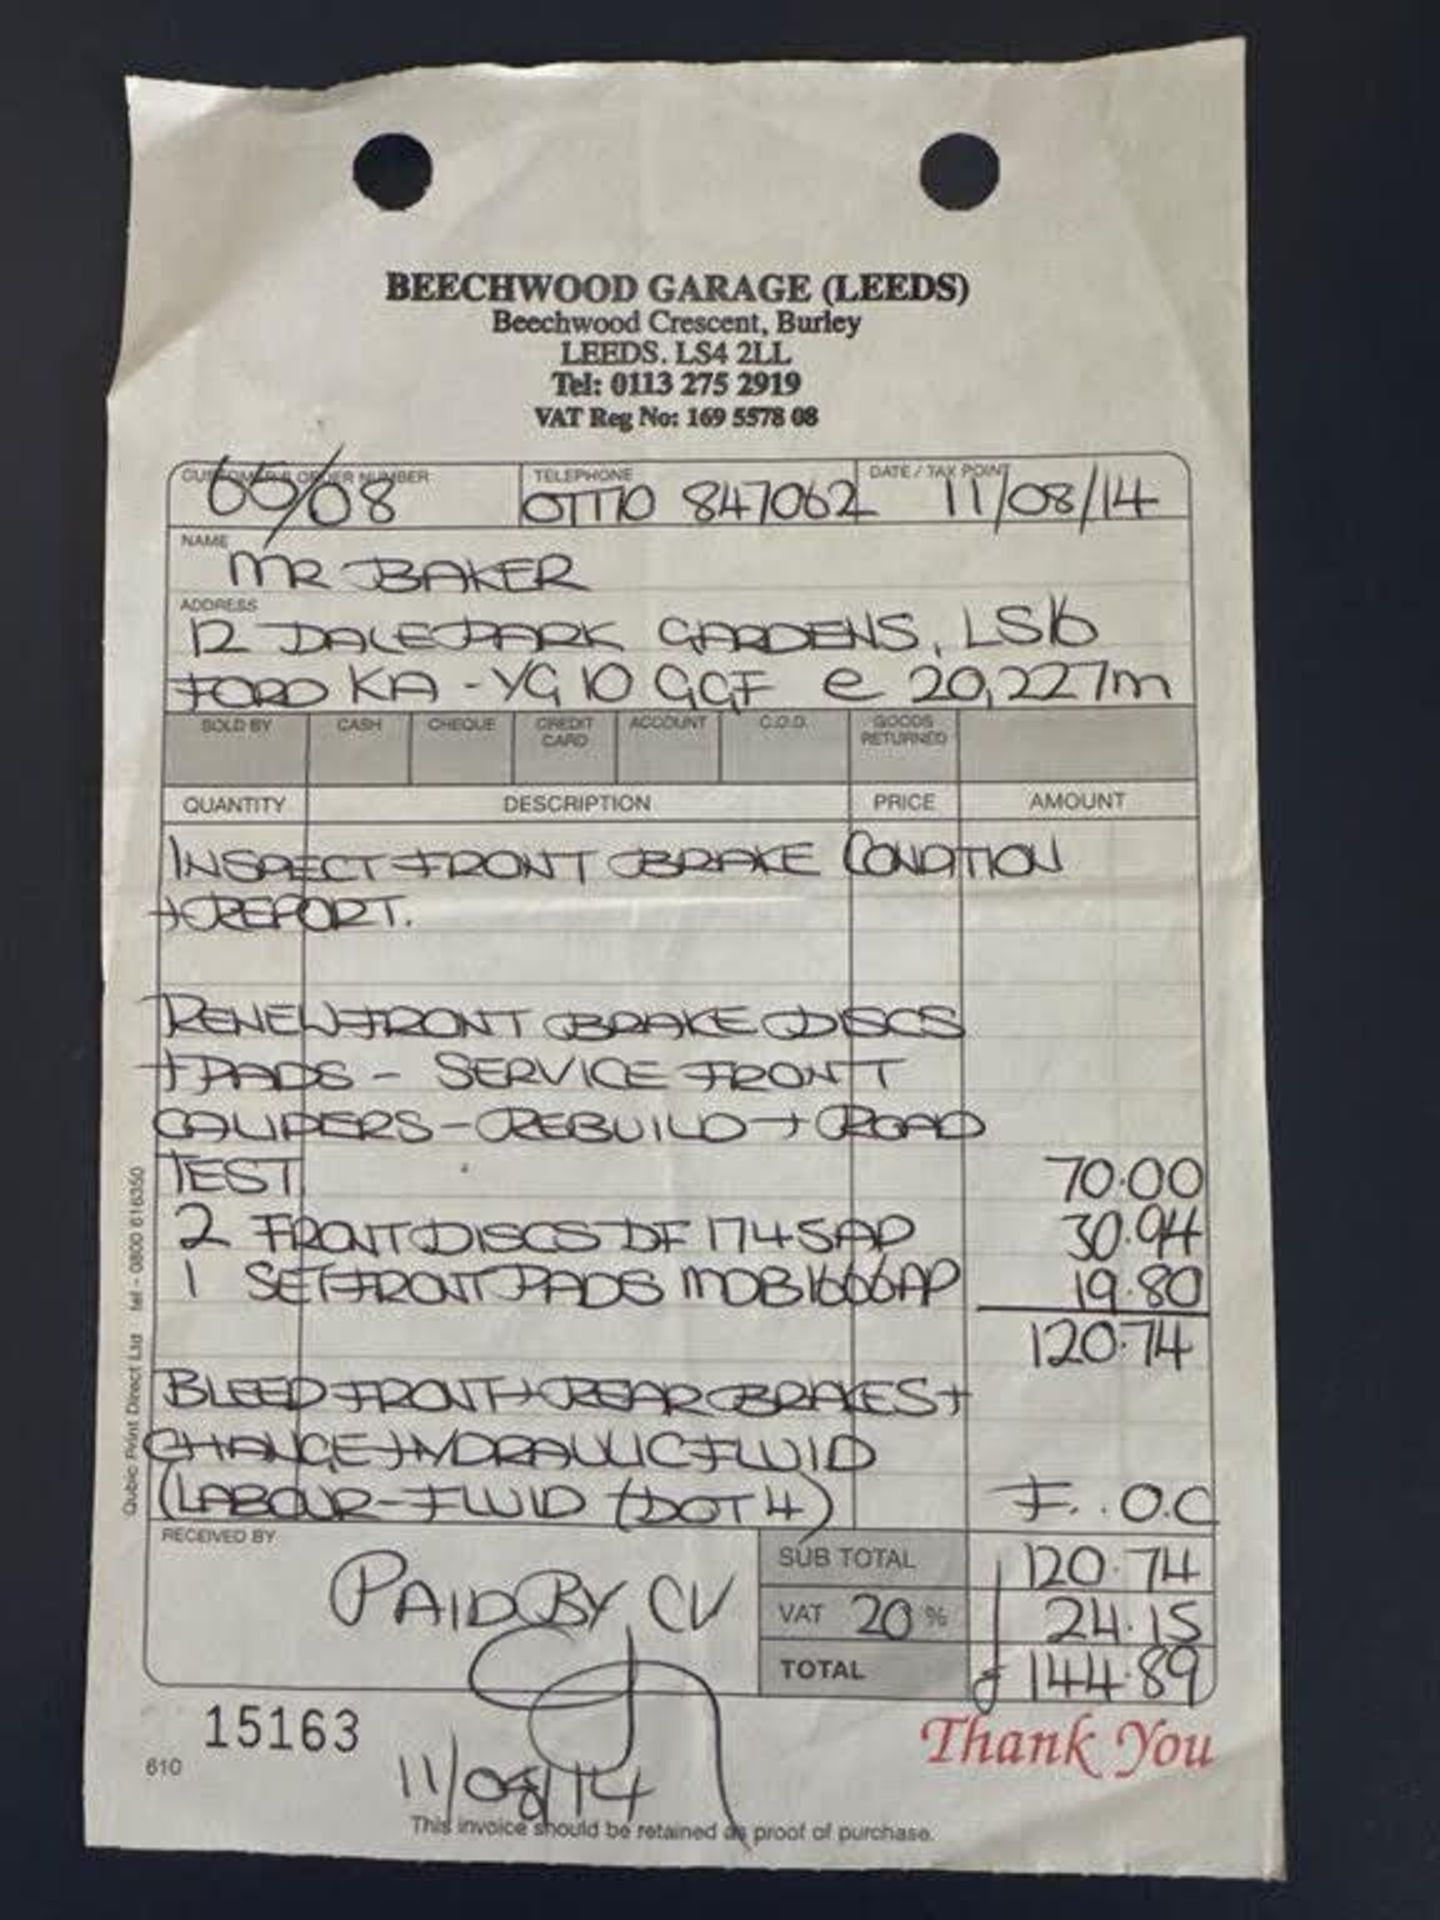 BEECHWOOD GARAGE (LEEDS)
Beechwood Crescent, Burley
LEEDS. LS4 2LL
Tel: 0113 275 2919
VAT Reg No: 169 5578 08
CUSTOMER'S ORDER NUMBER TELEPHONE DATE / TAX POINT
/08 847062 11/08/14
NAME
MR BAKER
ADDRESS
12 DALE PARK GARDENS, LS16
FORD KA - YG10 GGF @ 20,227m
SOLD BY CASH CHEQUE CREDIT CARD ACCOUNT C.O.D. GOODS RETURNED
QUANTITY DESCRIPTION PRICE AMOUNT
INSPECT FRONT BRAKE CONDITION
+ REPORT.
RENEW FRONT BRAKE DISCS
+ PADS - SERVICE FRONT
CALIPERS - REBUILD + ROAD
TEST 70.00
2 FRONT DISCS DF1745AP 30.94
1 SET FRONT PADS MDB1606AP 19.80
120.74
BLEED FRONT + REAR BRAKES +
CHANGE HYDRAULIC FLUID
(LABOUR - FLUID (DOT 4) F.O.C
RECEIVED BY
PAID BY CV
SUB TOTAL 120.74
VAT 20 % 24.15
TOTAL £144.89
15163
610
11/08/14
Thank You
This invoice should be retained as proof of purchase.
Qubic Print Direct Ltd tel - 0800 616350